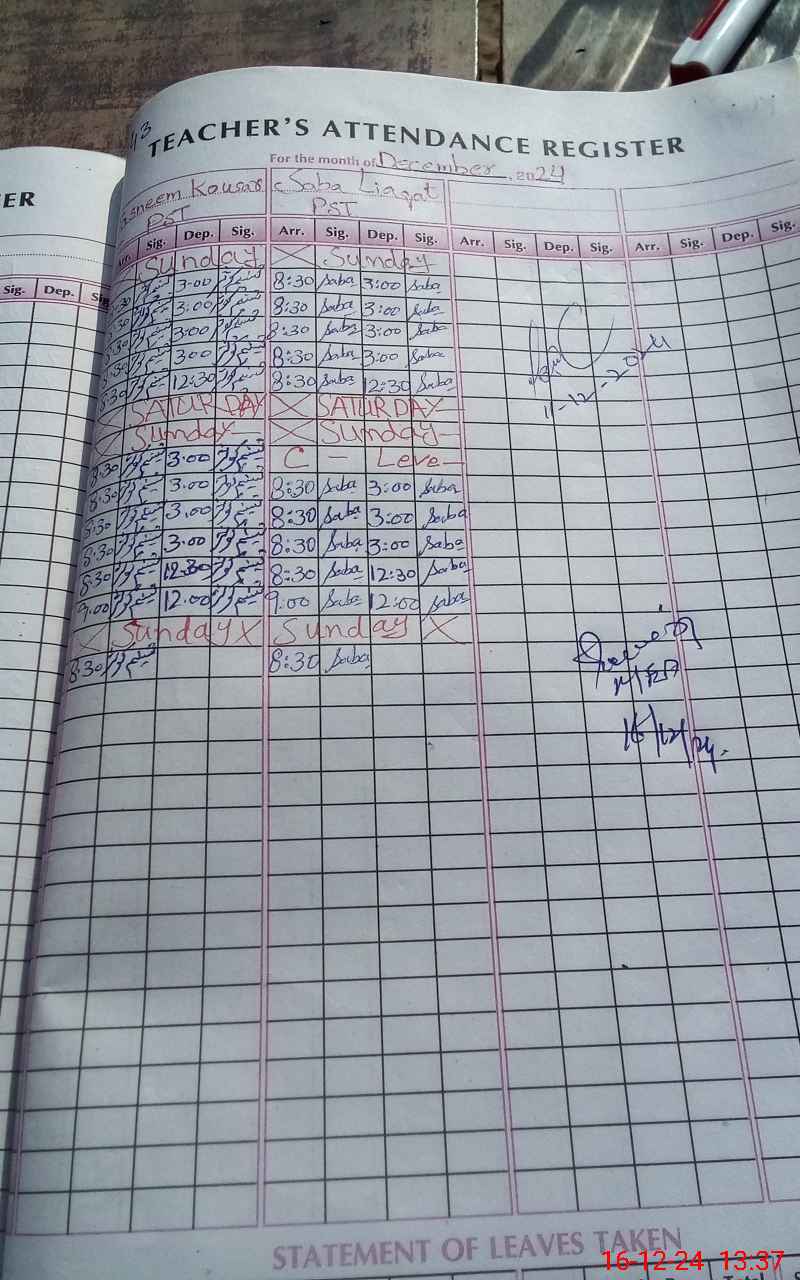 TEACHER'S ATTENDANCE REGISTER
For the month of December, 2024
ER
Tasneem Kousar Saba Liaqat
PST PST
Arr. Sig. Dep. Sig. Arr. Sig. Dep. Sig. Arr. Sig. Dep. Sig. Arr. Sig. Dep. Sig.
Sig. Dep.
Sunday Sunday
8:30 3:00 8:30 Saba 3:00 Saba
8:30 3:00 8:30 Saba 3:00 Saba
8:30 3:00 8:30 Saba 3:00 Saba
8:30 3:00 8:30 Saba 3:00 Saba
8:30 12:30 8:30 Saba 12:30 Saba
11-12-2024
SATURDAY SATURDAY
Sunday Sunday
8:30 3:00 C - Leve
8:30 3:00 8:30 Saba 3:00 Saba
8:30 3:00 8:30 Saba 3:00 Saba
8:30 3:00 8:30 Saba 3:00 Saba
8:30 12:30 8:30 Saba 12:30 Saba
9:00 12:00 9:00 Saba 12:00 Saba
Sunday Sunday
8:30 8:30 Saba
16/12/24.
STATEMENT OF LEAVES TAKEN
16-12-24 13:37